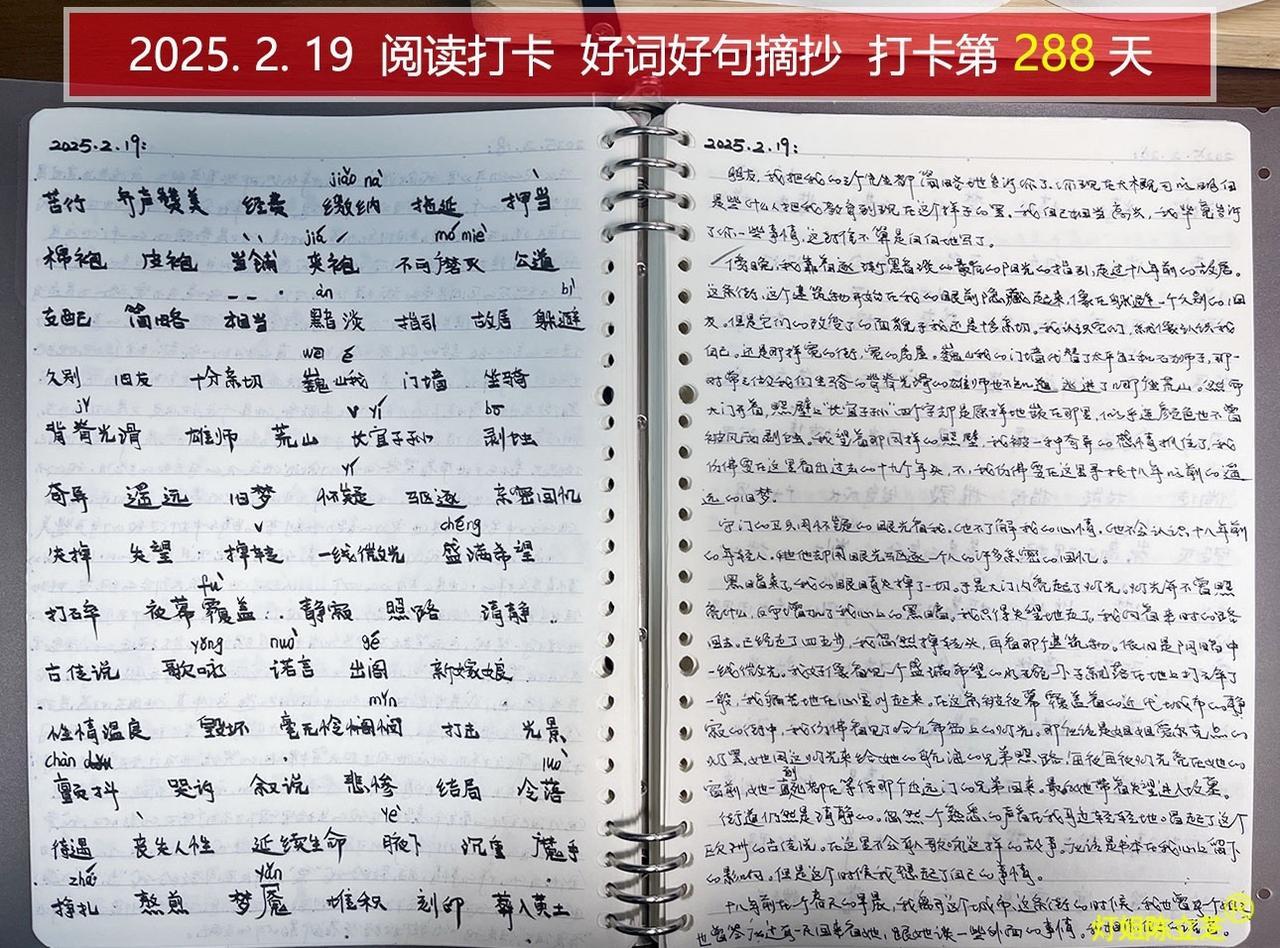 2025. 2. 19 阅读打卡 好词好句摘抄 打卡第 288 天
2025.2.19:
jiǎo nà
苦行 齐声赞美 经费 缴纳 拖延 押当
jiá mó miè
棉袍 皮袍 当铺 夹袍 不可磨灭 公道
àn bì
支配 简略 相当 黯淡 指引 故居 躲避
wēi é
久别 旧友 十分亲切 巍峨 门墙 坐骑
jǐ yí bō
背脊光滑 雄师 荒山 长宜子孙 剥蚀
yí
奇异 遥远 旧梦 怀疑 驱逐 亲密回忆
chéng
失掉 失望 掉转 一线微光 盛满希望
fù
打碎 夜幕覆盖 静寂 照路 清静
yǒng nuò gé
古传说 歌咏 诺言 出阁 新嫁娘
mǐn
性情温良 毁坏 毫无怜悯 打击 光景
chàn luò
颤抖 哭诉 叙说 悲惨 结局 冷落
yè
待遇 丧失人性 延续生命 腋下 沉重 魔手
zhá yǎn
挣扎 熬煎 梦魇 堆积 刻印 葬入黄土
2025.2.19:
朋友,我把我的三个先生都简略地告诉你了。你现在大概可以明白
是些什么人把我教育到现在这个样子的罢。我自己相当高兴,我毕竟告诉
了你一些事情,这封信不算是白白地写了。
傍晚,我靠着逐渐黑暗淡的最后的阳光的指引,走过十八年前的故居。
这条街、这个建筑物开始在我的眼前隐藏起来,像在躲避一个久别的旧
友。但是它们的改变了的面貌于我还是十分亲切。我认识它们,就像认识我
自己。还是那样宽的街,宽的房屋。巍峨的门墙代替了太平缸和石狮子,那一
对常常做我们坐骑的背脊光滑的雄狮也不知逃进了哪座荒山。然而
大门开着,照壁上“长宜子孙”四个字却是原样地嵌在那里,似乎连颜色也不曾
被风雨剥蚀。我望着那同样的照壁,我被一种奇异的感情抓住了,我
仿佛要在这里看出过去的十九个年头,不,我仿佛要在这里寻找十八年以前的遥
远的旧梦。
守门的卫兵用怀疑的眼光看我。他不了解我的心情。他不会认识十八年前
的年轻人。他却用眼光驱逐一个人的许多亲密的回忆。
黑暗来了。我的眼睛失掉了一切。于是大门内亮起了灯光。灯光并不曾照
亮什么,反而增加了我心上的黑暗。我只得失望地走了。我向着来时的路
回去。已经走了四五步,我忽然掉转头,再看那个建筑物。依旧是阴暗中
一线微光。我好像看见一个盛满希望的水碗一下子就落在地上打碎了
一般,我痛苦地在心里叫起来。在这条被夜幕覆盖着的近代城市的静
寂的街中,我仿佛看见了哈立希岛上的灯光。那应该是姐姐爱尔克点的
灯罢。她用这灯光来给她的航海的兄弟照路,每夜每夜灯光亮在她的
窗前,她一直到死都在等待那个出远门的兄弟回来。最后她带着失望进入坟墓。
街道仍然是清静的。忽然一个熟悉的声音在我耳边轻轻地唱起了这个
欧洲的古传说。在这里不会有人歌咏这样的故事。应该是书本在我心上留下
的影响。但是这个时候我想起了自己的事情。
十八年前在一个春天的早晨,我离开这个城市、这条街的时候,我也曾有一个姐
也曾答应过有一天回来看她,跟她谈一些外面的事情。我相信